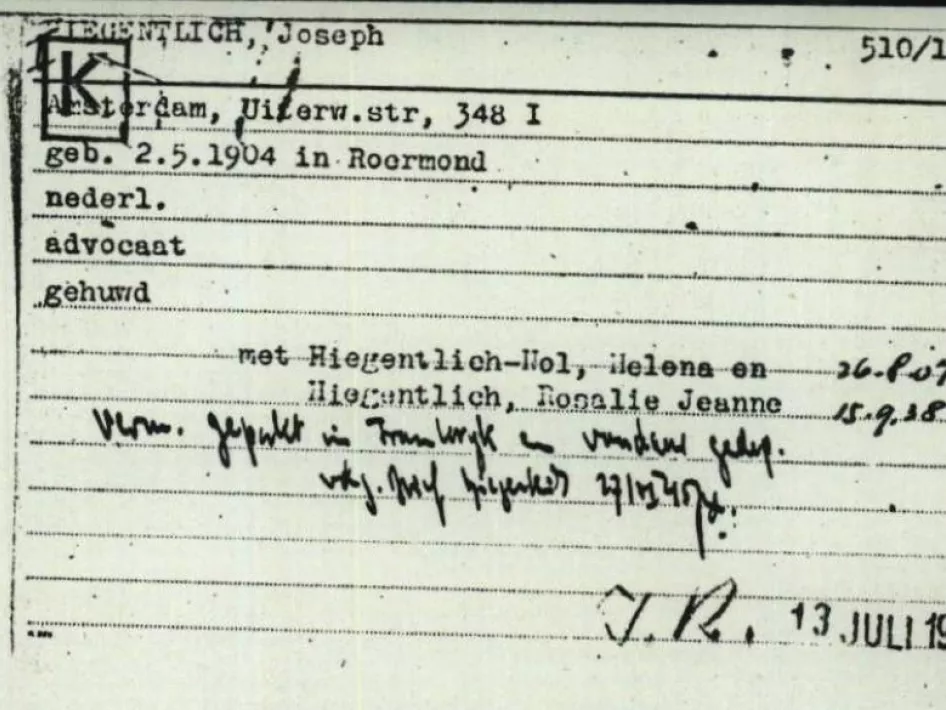 HIEGENTLICH, Joseph
510/1
K
Amsterdam, Uiterw.str, 348 I
geb. 2.5.1904 in Roermond
nederl.
advocaat
gehuwd
met Hiegentlich-Nol, Helena en 26.8.07
Hiegentlich, Rosalie Jeanne 15.9.38
Verm. gepakt in Frankryk en vandaar gedep.
J.R. 13 JULI 19